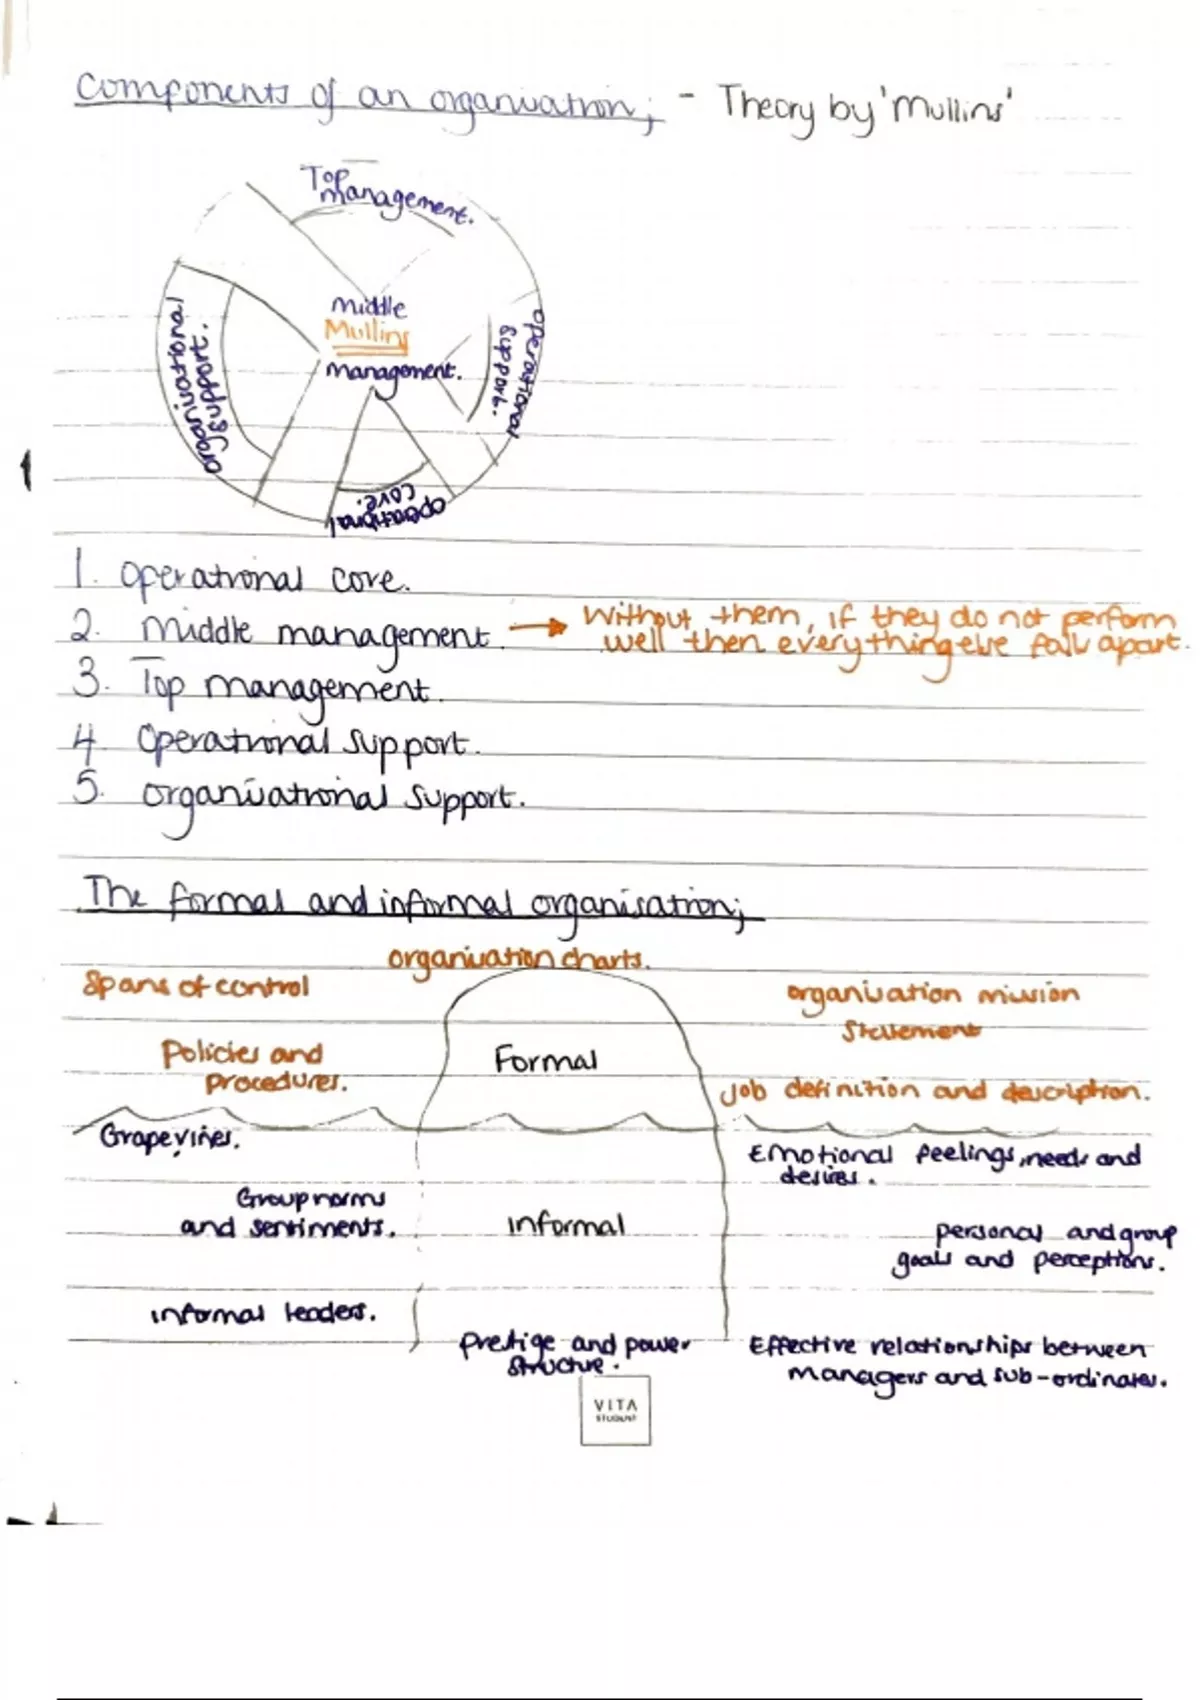 Components of an organisation; - Theory by 'Mullins'
Top
management.
Middle
Mullins
management.
organisational
support.
operational
support.
operational
core.
1. Operational core.
2. Middle management. → Without them, if they do not perform
well then everything else falls apart.
3. Top management.
4 Operational support.
5. organisational support.
The formal and informal organisation;
organisation charts.
Spans of control
organisation mission
statement
Policies and
procedures.
Formal
Job definition and description.
Grapevines.
Emotional feelings, needs and
desires.
Group norms
and sentiments.
informal
personal and group
goals and perceptions.
informal leaders.
Prestige and power
structure.
Effective relationships between
managers and sub-ordinates.
VITA
STUDENT